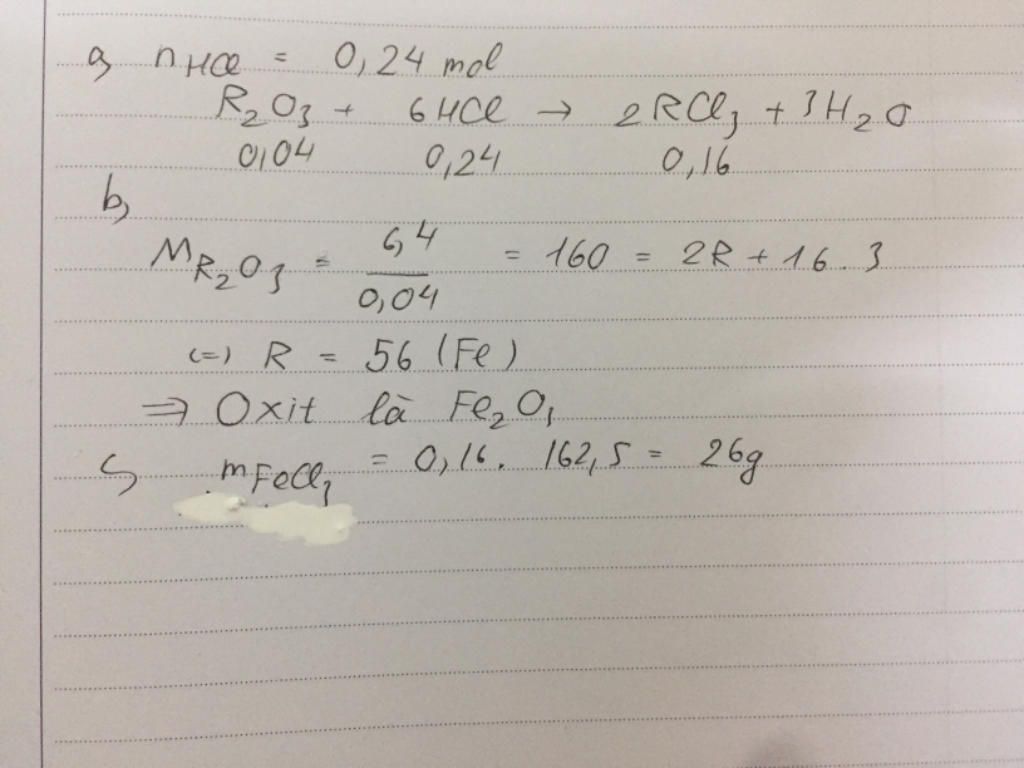 a, nHCl = 0,24 mol
R2O3 + 6HCl → 2RCl3 + 3H2O
0,04 0,24 0,16
b,
MR2O3 = 6,4 / 0,04 = 160 = 2R + 16.3
(=) R = 56 (Fe)
⇒ Oxit là Fe2O3
c, mFeCl3 = 0,16. 162,5 = 26g